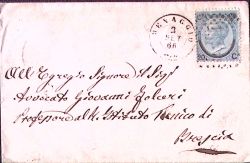 MENAGGIO
2
SET
66
All Egregio Signore il Sigr
Avvocato Giovanni
Professore all Istituto Tecnico di
Brescia